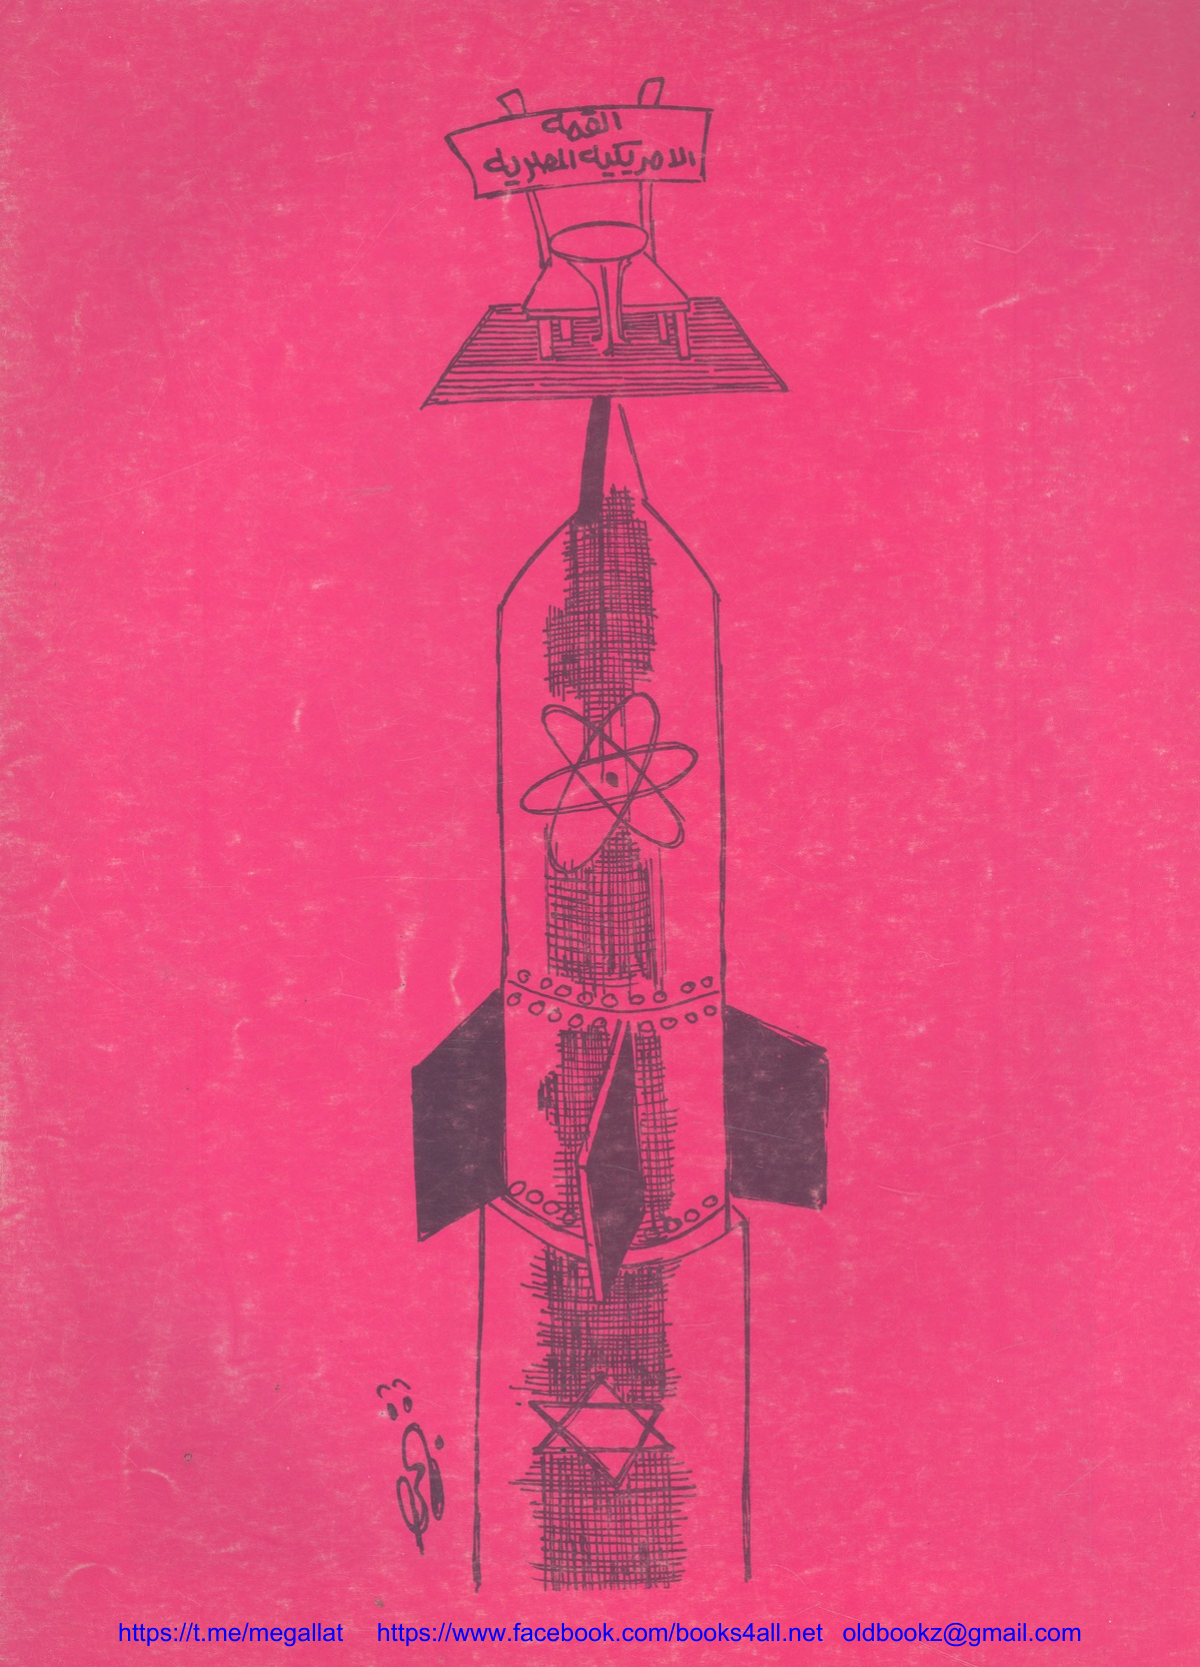 القمه
الامريكيه المصريه
https://t.me/megallat https://www.facebook.com/books4all.net oldbookz@gmail.com